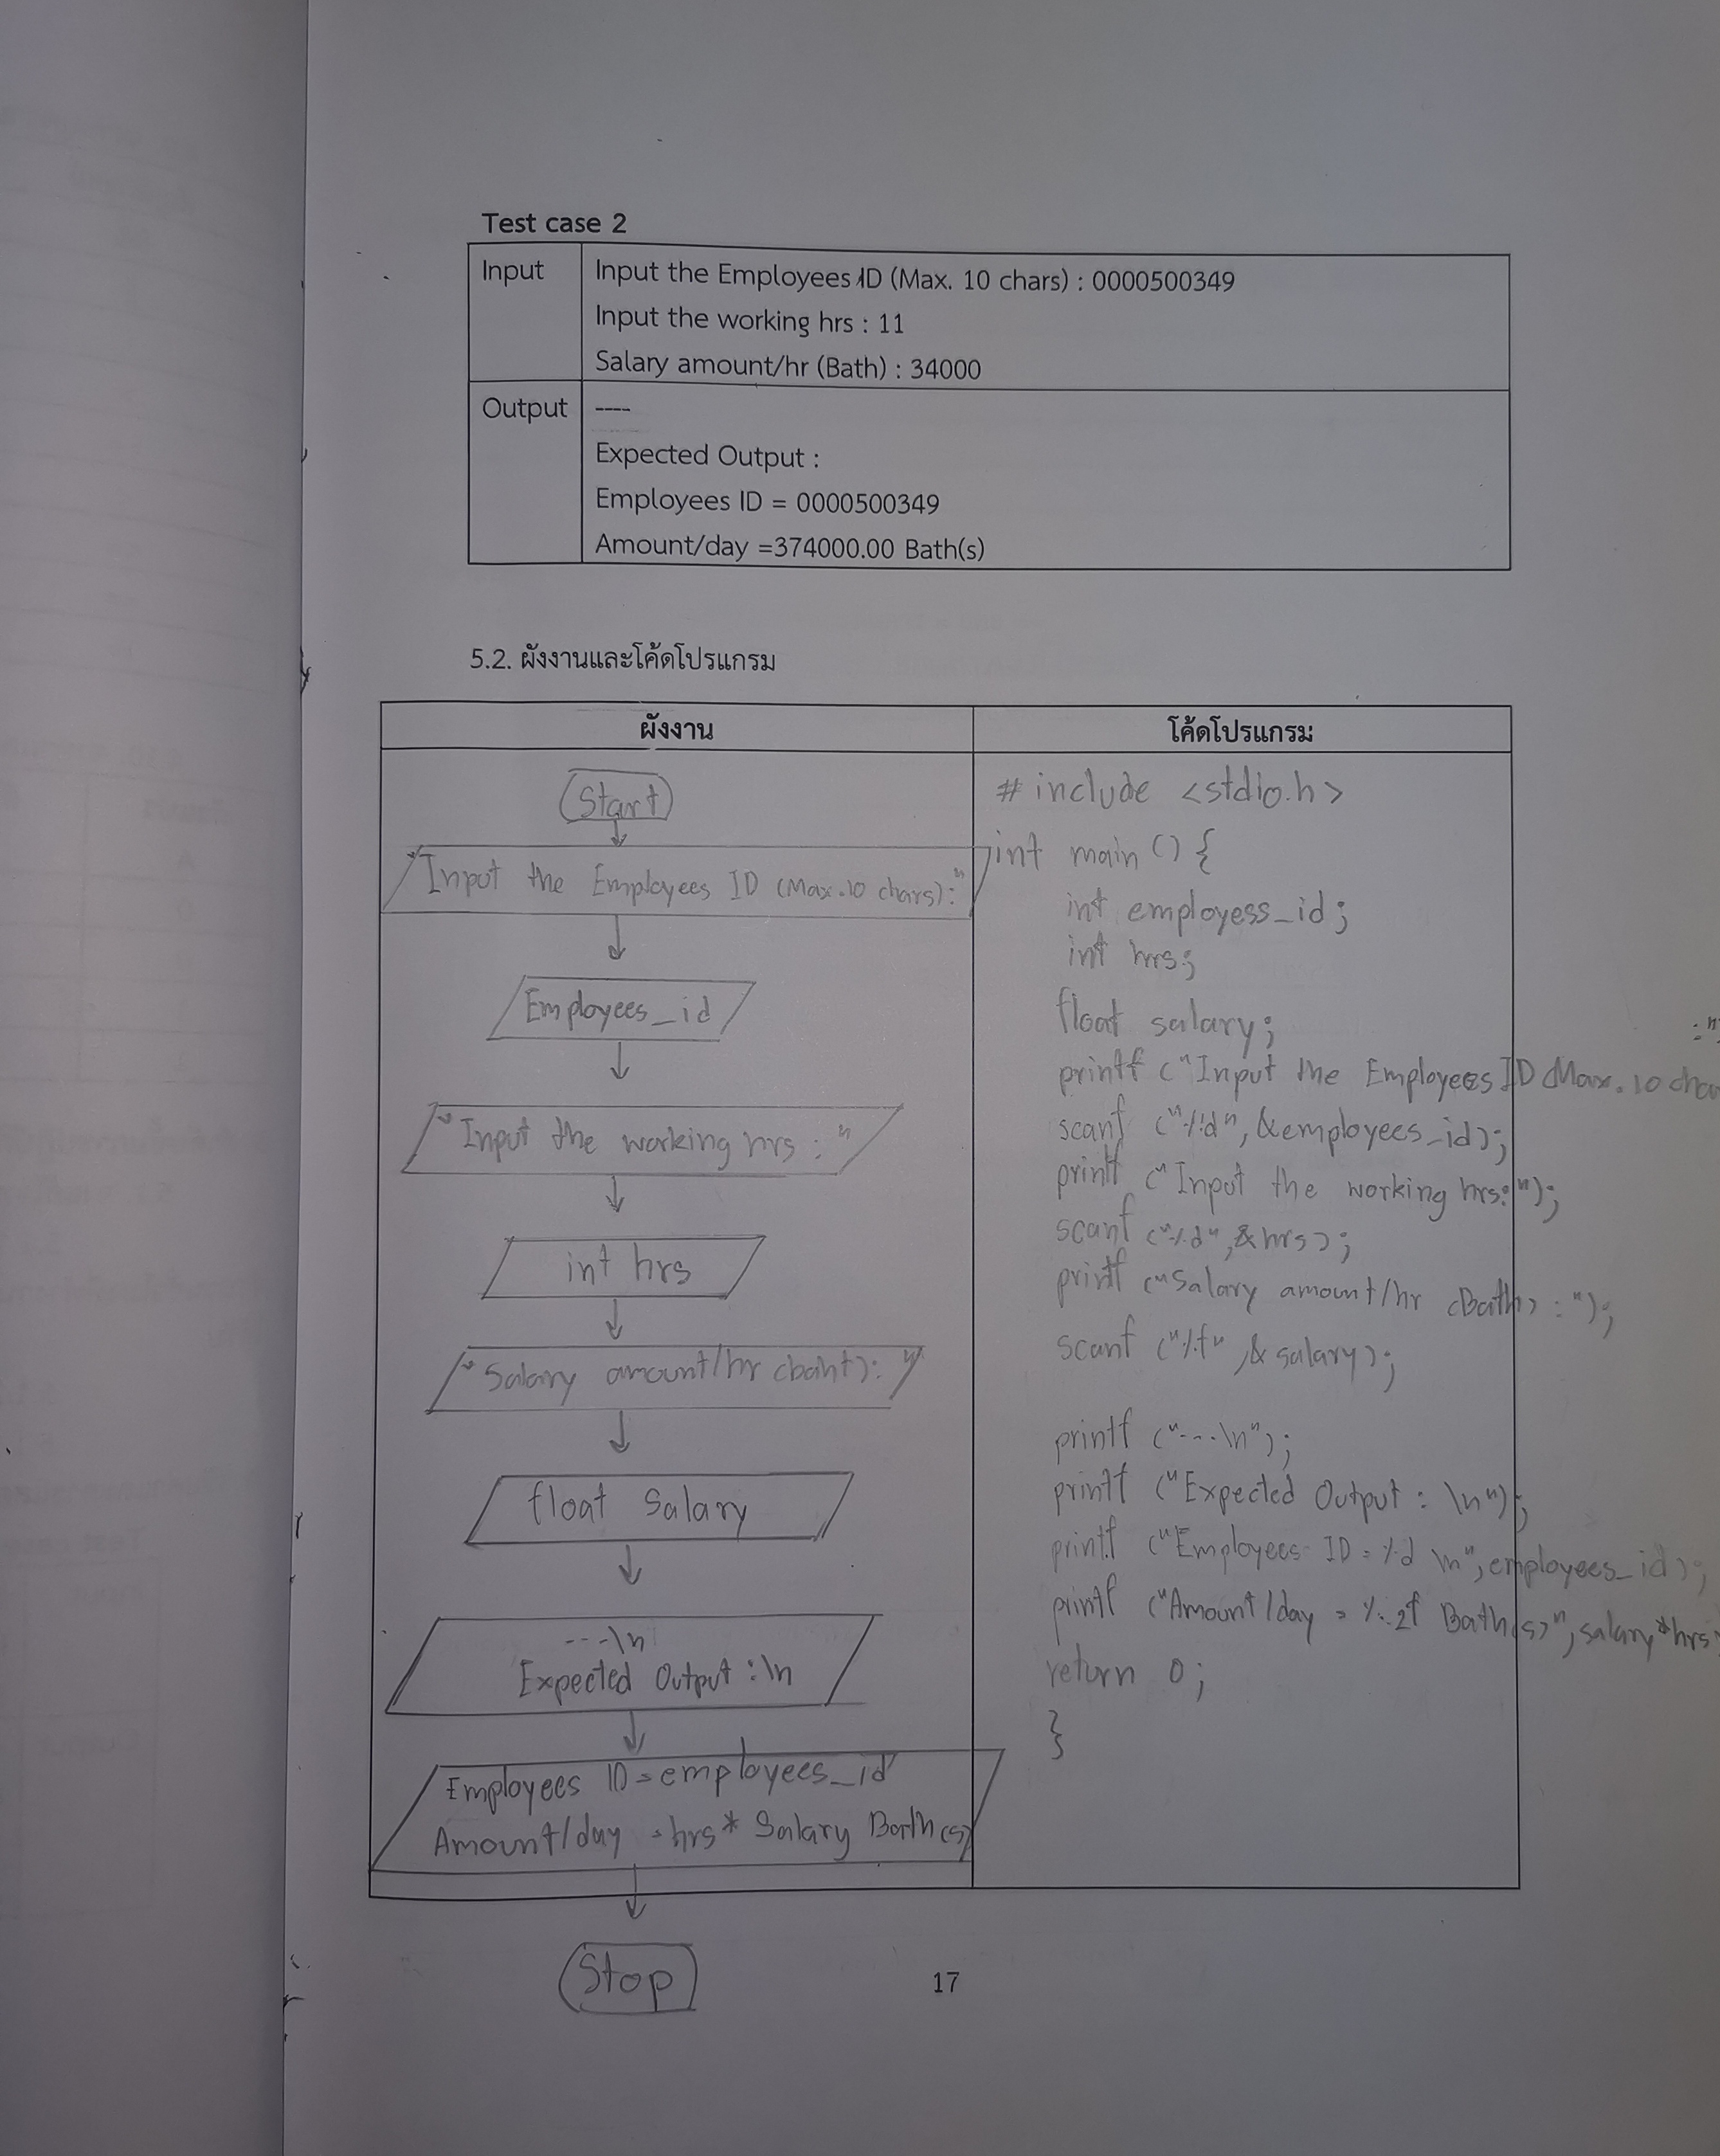 Test case 2
Input
Input the Employees ID (Max. 10 chars) : 0000500349
Input the working hrs : 11
Salary amount/hr (Bath) : 34000
Output
----
Expected Output :
Employees ID = 0000500349
Amount/day =374000.00 Bath(s)
5.2. ผังงานและโค้ดโปรแกรม
ผังงาน
Start
"Input the Employees ID (Max.10 chars):"
Employees_id
"Input the working hrs : "
int hrs
"Salary amount/hr (baht): "
float Salary
---\n
Expected Output :\n
Employees ID = employees_id
Amount/day = hrs * Salary Bath(s)
Stop
โค้ดโปรแกรม
# include <stdio.h>
int main () {
int employess_id;
int hrs;
float salary;
printf ("Input the Employees ID (Max. 10 cha :"
scanf ("%d", &employees_id);
printf ("Input the working hrs:");
scanf ("%d", &hrs);
printf ("Salary amount/hr (Bath) : ");
scanf ("%f", & salary);
printf ("---\n");
printf ("Expected Output : \n");
printf ("Employees ID = %d \n", employees_id);
printf ("Amount/day = %.2f Bath(s)", salary*hrs)
return 0;
}
17